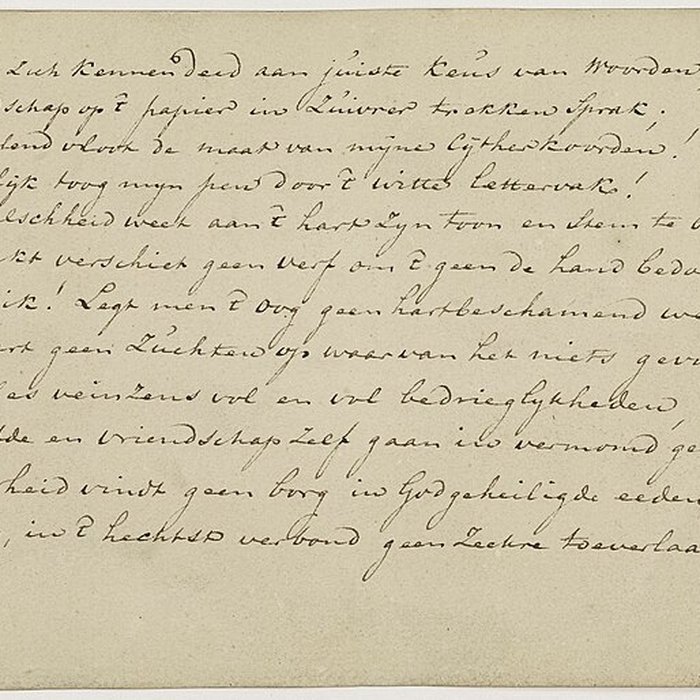 Zich kennen deed aan juiste keus van Woorden
schap op 't papier in Zuivrer trekken Sprak;
lend vloot de maat van mijne Cytherkoorden!
lijk toog myn pen door 't witte lettervak!
lschheid weet aan 't hart Zyn toon en Stem te
kt verschiet geen verf om 't geen de hand bedo
ik! Legt men 't oog geen hartbeschamend we
rt geen Zuchten op waar van het niets gevo
es veinzens vol en vol bedrieglykheden,
de en vriendschap Zelf gaan in vermomd ge
heid vindt geen borg in God geheiligde eeden
, in 't hechtst verbond geen Zeekre toeverlaa